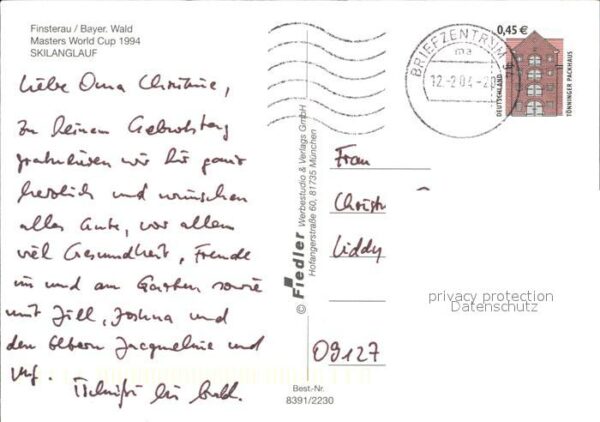 Finsterau / Bayer. Wald
Masters World Cup 1994
SKILANGLAUF
Liebe Oma Christine,
zu Deinem Geburtstag
gratulieren wir Dir ganz
herzlich und wünschen
alles Gute, vor allem
viel Gesundheit, Freude
im und am Garten sowie
mit Jill, Joshua und
den Eltern Jacqueline und
Tschüß bis bald.
© Fiedler Werbestudio & Verlags GmbH
Hofangerstraße 60, 81735 München
Best.-Nr.
8391/2230
BRIEFZENTRUM
ma
12.-2.04-20
0,45 €
DEUTSCHLAND
TÖNNINGER PACKHAUS
Frau
Christ
Liddy
09127
privacy protection
Datenschutz